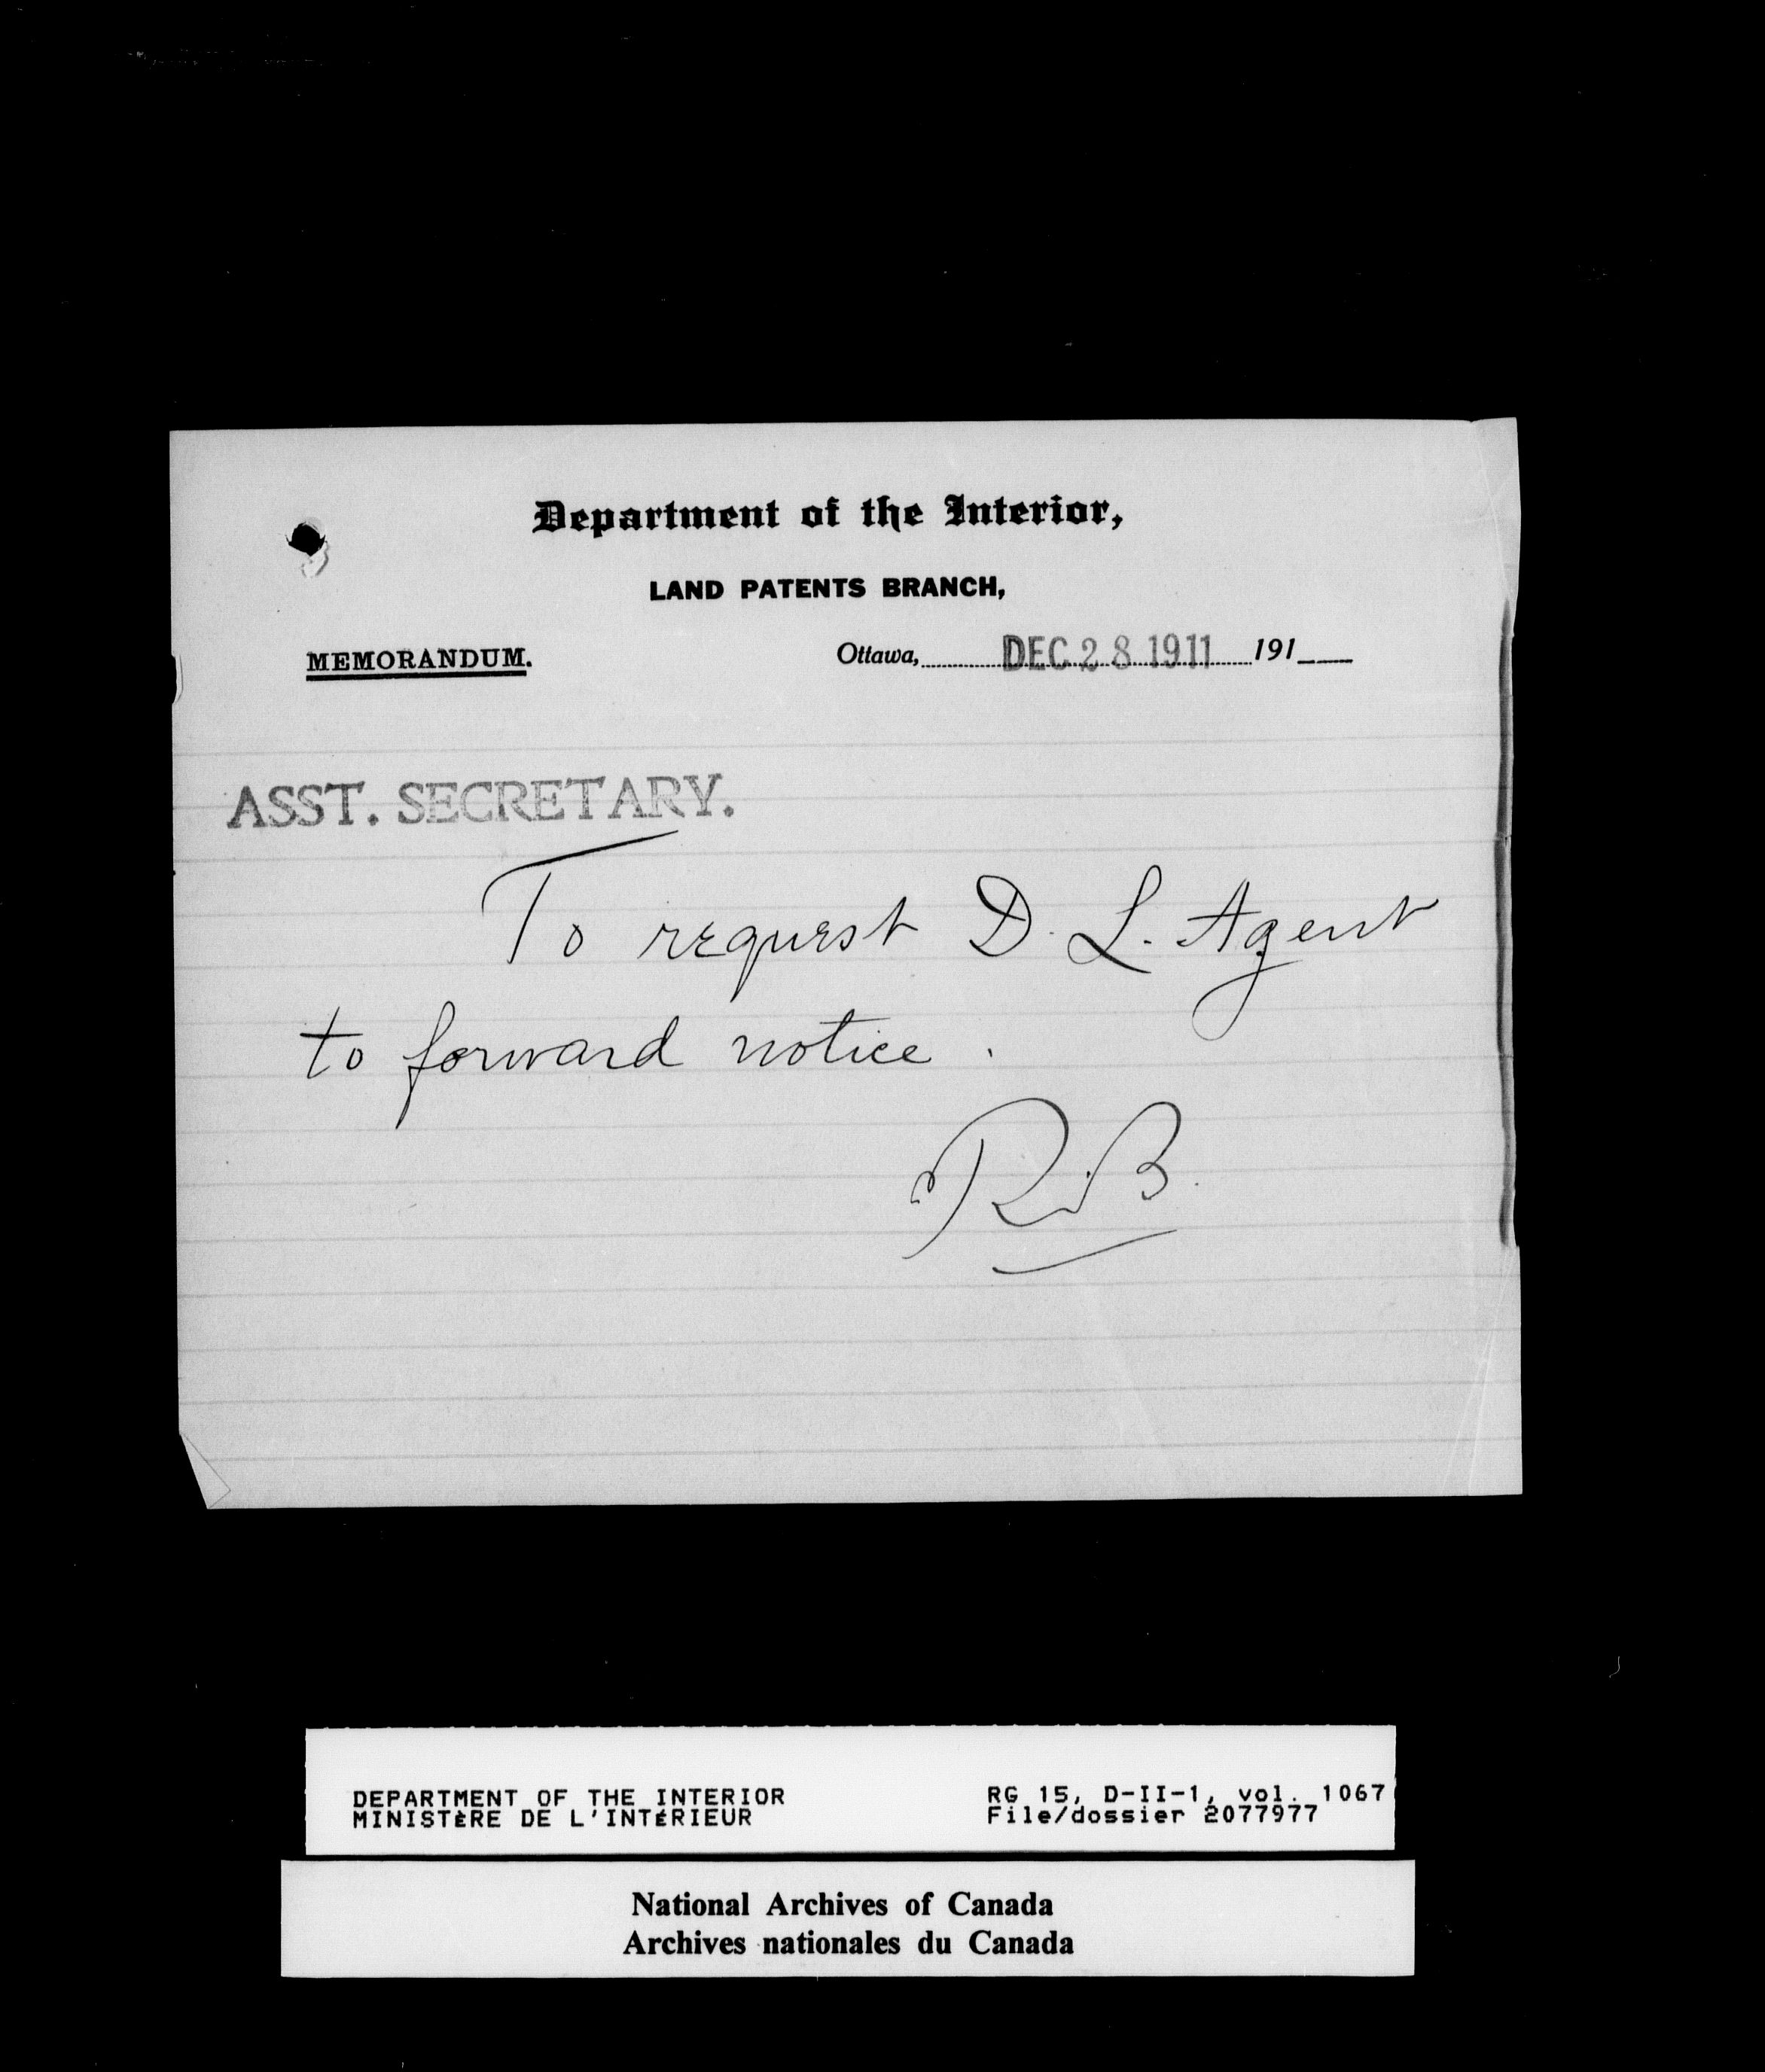 Department of the Interior,
LAND PATENTS BRANCH,
MEMORANDUM. Ottawa, DEC 28 1911 191
ASST. SECRETARY.
To request D. L. Agent
to forward notice.
R.B.
DEPARTMENT OF THE INTERIOR RG 15, D-II-1, vol. 1067
MINISTÈRE DE L'INTÉRIEUR File/dossier 2077977
National Archives of Canada
Archives nationales du Canada